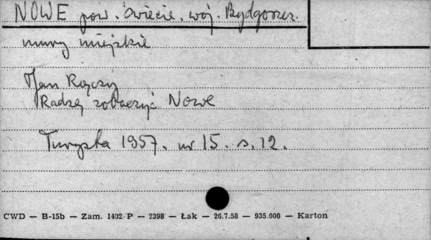 NOWE pow. Świecie, woj. Bydgoszcz.
mury miejskie
Jan Rączy
Radzę zobaczyć Nowe
Turysta 1957. nr 15. s. 12.
CWD — B-15b — Zam. 1402 P — 2398 — Łak — 26.7.58 — 935.000 — Karton